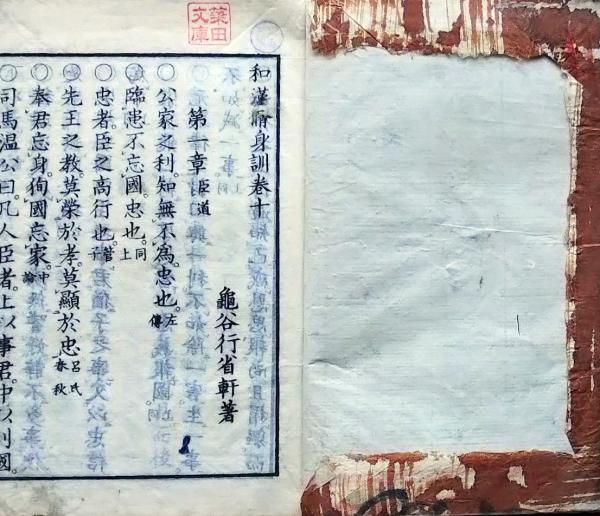 築田文庫
和漢脩身訓卷十
龜谷行省軒著
第一章臣道
〇公家之利。知無不爲忠也。左傳
臨患不忘國。忠也。同上
〇忠者。臣之高行也。管子
〇先王之教。莫榮於孝。莫顯於忠。呂氏春秋
〇奉君忘身。徇國忘家。中論
〇司馬溫公曰。凡人臣者。上以事君。中以利國。